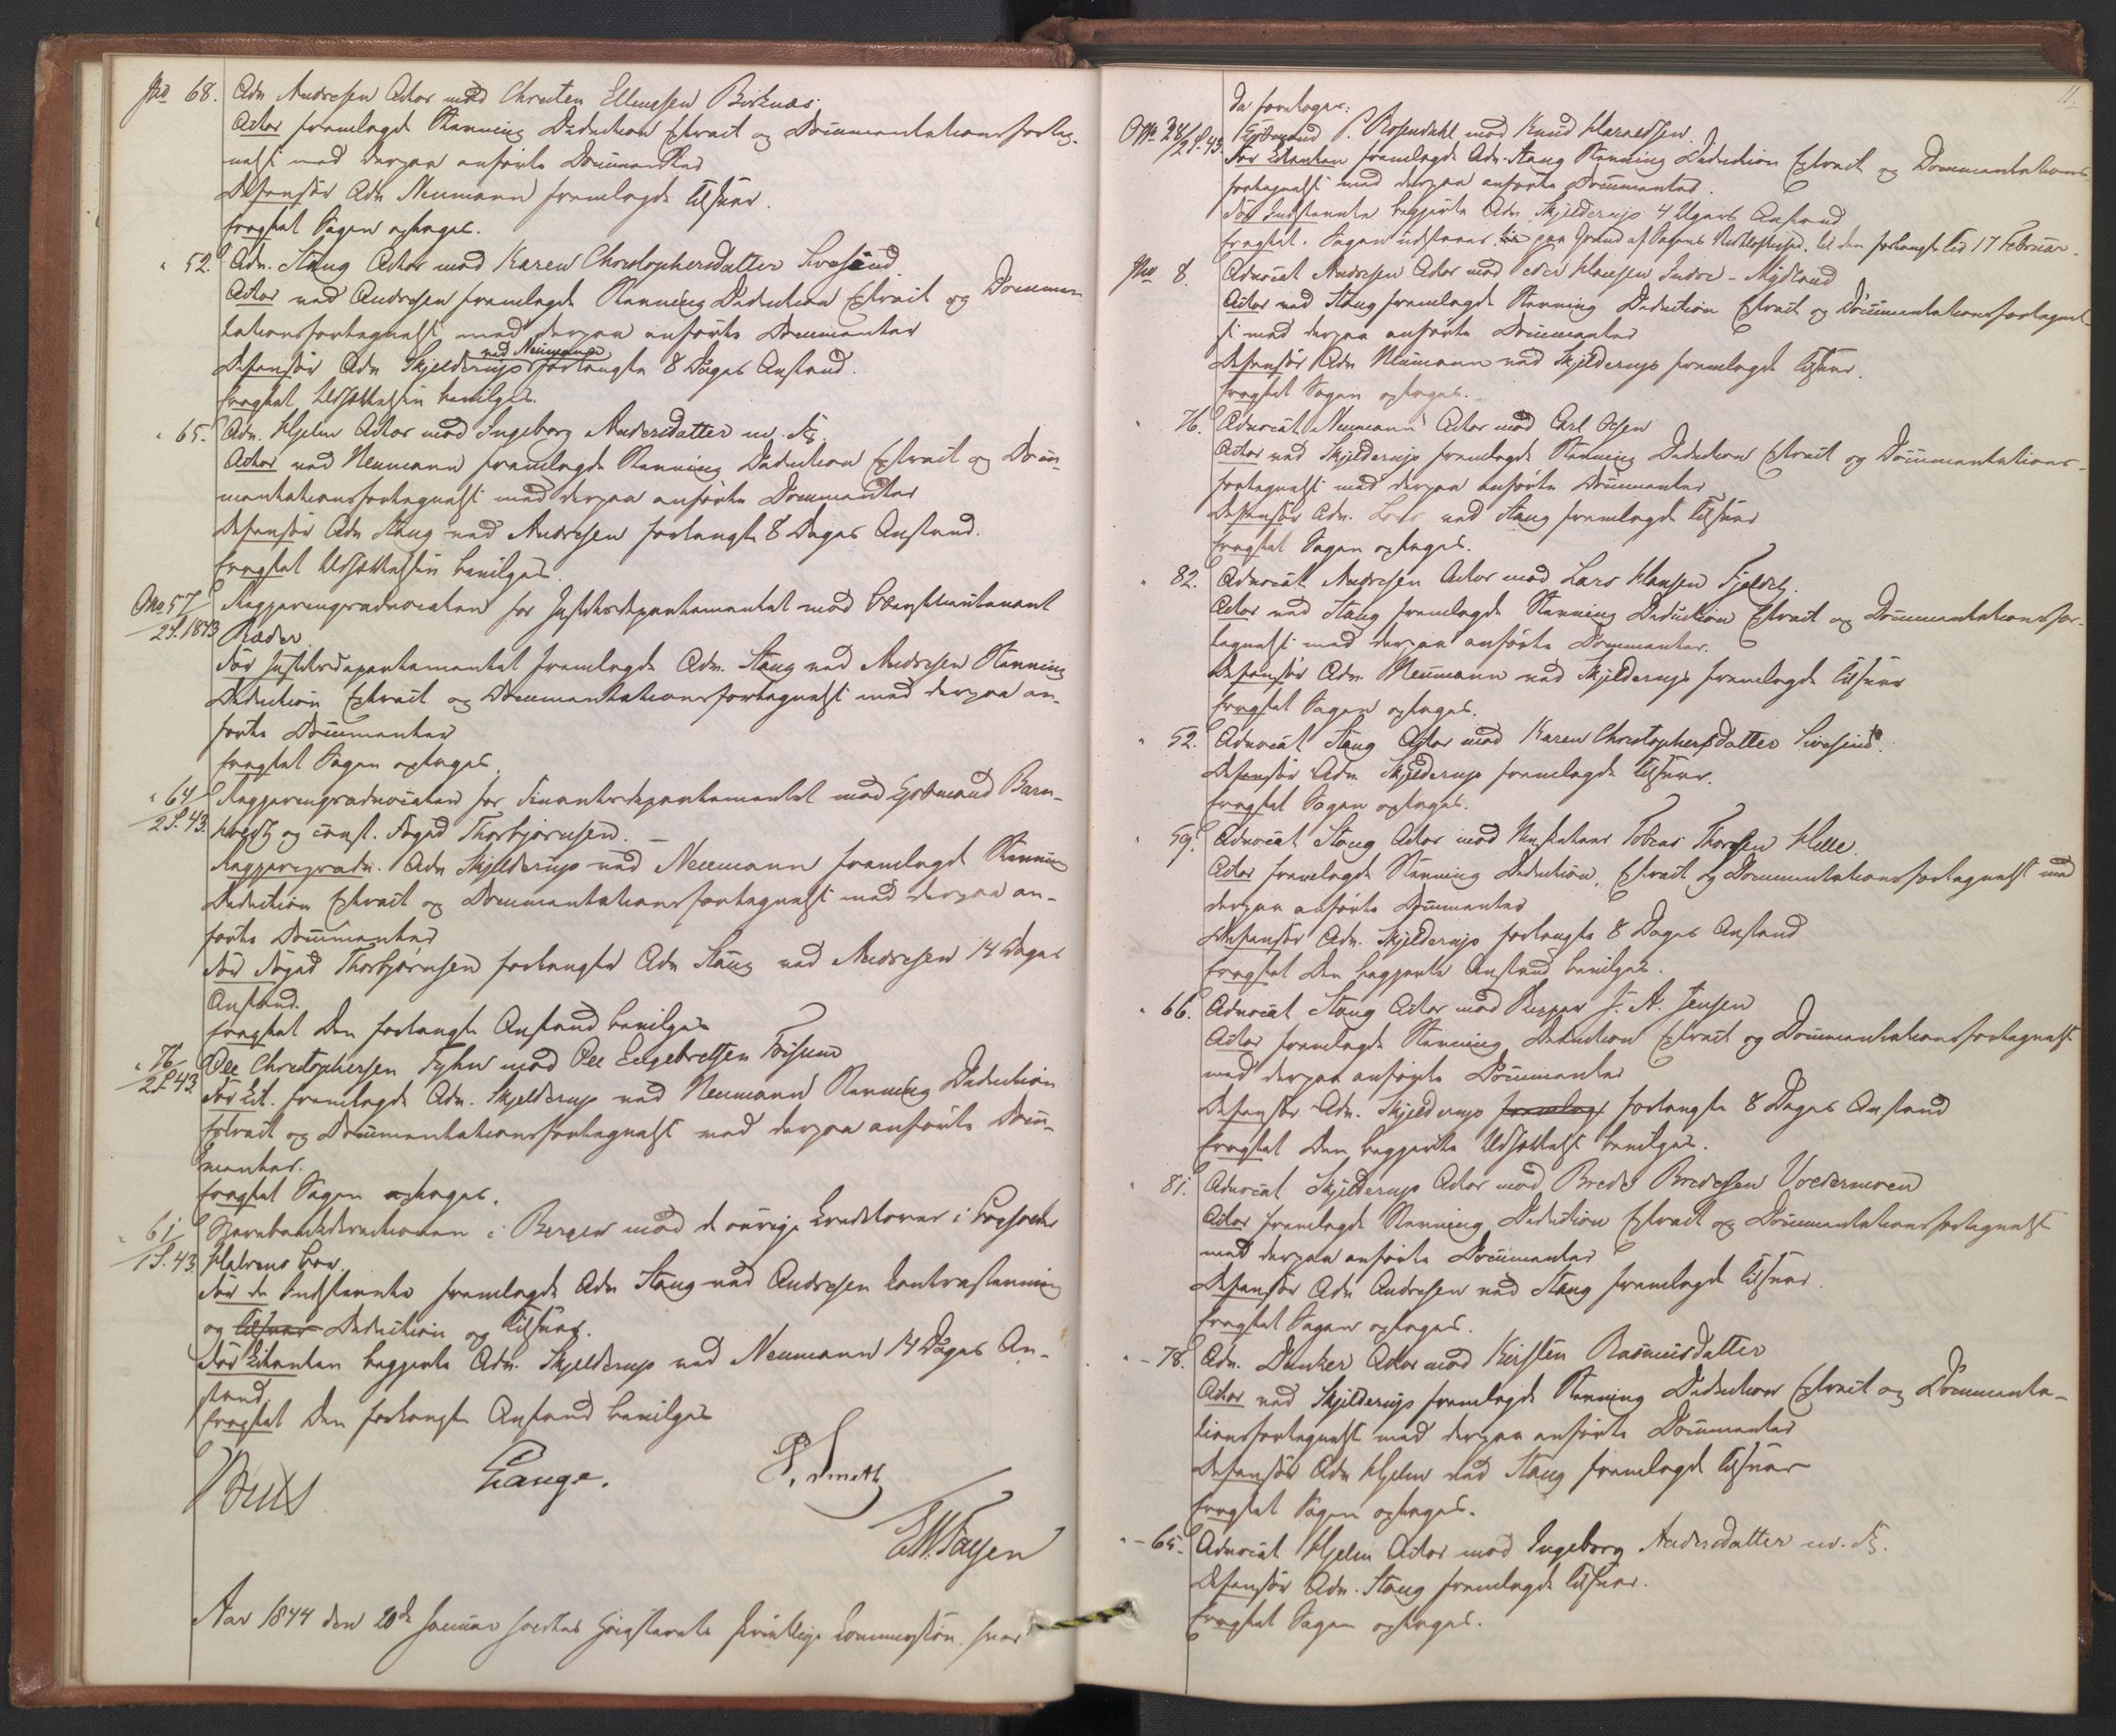 No 68. Adv. Andresen Actor mod Christen Ellingsen Birknæs.
Actor fremlagde Stævning Deduction Extract og Documentationsforteg-
nelse med derpaa anførte Documenter
Defensor Adv. Neumann fremlagde Tilsvar.
Eragtet Sagen optages.
" 52. Adv. Stang Actor mod Karen Christophersdatter Sivesind.
Actor ved Andresen fremlagde Stævning Deduction Extract og Documen-
tationsfortegnelse med derpaa anførte Documenter
Defensor Adv. Skjelderup ved Neumann forlangte 8 Dages Anstand.
Eragtet Udsættelsen bevilges.
" 65. Adv. Hjelm Actor mod Ingeborg Andersdatter m. fl.
Actor ved Neumann fremlagde Stævning Deduction Extract og Docu-
mentationsfortegnelse med derpaa anførte Documenter
Defensor Adv. Stang ved Andresen forlangte 8 Dages Anstand.
Eragtet Udsættelsen bevilges.
No 57 Regjeringsadvocaten for Justitsdepartementet mod Oberstlieutenant
2S. 1843 Ræder
For Justitsdepartementet fremlagde Adv. Stang ved Andresen Stævning
Deduction Extract og Documentationsfortegnelse med derpaa an-
førte Documenter
Eragtet Sagen optages.
" 64 Regjeringsadvocaten for Finantsdepartementet mod Kjøbmand Barn-
2S. 43. holdt og const. Foged Thorbjørnsen. –
Regjeringsadv. Adv. Skjelderup ved Neumann fremlagde Stævning
Deduction Extract og Documentationsfortegnelse med derpaa an-
førte Documenter
For Foged Thorbjørnsen forlangte Adv. Stang ved Andresen 14 Dages
Anstand.
Eragtet Den forlangte Anstand bevilges
" 76 Ole Christophersen Tyhn mod Ole Engebretsen Foisum
2S 43. For Cit. fremlagde Adv. Skjelderup ved Neumann Stævning Deduction
Extract og Documentationsfortegnelse med derpaa anførte Docu-
menter.
Eragtet Sagen optages.
" 61 Sparebankdirectionen i Bergen mod de øvrige Creditorer i
1S. 43. Halvens Boe.
For de Indstævnte fremlagde Adv. Stang ved Andresen Contrastævning
og Tilsvar Deduction og Tilsvar.
For Citanten begjerte Adv. Skjelderup ved Neumann 14 Dages An-
stand
Eragtet Den forlangte Anstand bevilges
Lange. P. Smith
Aar 1844 den 20de Januar holdtes Høiesterets skriftlige Commission, hvor
11.
da foretoges:
No 28/2S. 43. Kjøbmand P. Rosendahl mod Knud Haraldsen.
For Citanten fremlagde Adv. Stang Stævning Deduction Extract og Documentations
fortegnelse med derpaa anførte Documenter.
For Indstævnte begjerte Adv. Skjelderup 4 Ugers Anstand
Eragtet. Sagen udstaaer paa Grund af Sagens Vidtløftighed, til den forlangte Tid 17 Februar.
No 8. Advocat Andresen Actor mod Peder Hansen Indre-Mydland
Actor ved Stang fremlagde Stævning Deduction Extract og Documentationsfortegnel-
se med derpaa anførte Documenter
Defensor Adv. Neumann ved Skjelderup fremlagde Tilsvar.
Eragtet Sagen optages.
" 76. Advocat Neumann Actor mod Carl Olsen
Actor ved Skjelderup fremlagde Stævning Deduction Extract og Documentations-
fortegnelse med derpaa anførte Documenter
Defensor Adv. ved Stang fremlagde Tilsvar
Eragtet Sagen optages.
" 82. Advocat Andresen Actor mod Lars Hansen Fjeldet.
Actor ved Stang fremlagde Stævning Deduction Extract og Documentationsfor-
tegnelse med derpaa anførte Documenter.
Defensor Adv. Neumann ved Skjelderup fremlagde Tilsvar
Eragtet Sagen optages.
" 52. Advocat Stang Actor mod Karen Christophersdatter Sivesind.
Defensor Adv. Skjelderup fremlagde Tilsvar.
Eragtet Sagen optages.
" 59. Advocat Stang Actor mod Tobias Thorsen Helle.
Actor fremlagde Stævning Deduction, Extract og Documentationsfortegnelse med
derpaa anførte Documenter
Defensor Adv. Skjelderup forlangte 8 Dages Anstand
Eragtet Den begjerte Anstand bevilges.
" 66. Advocat Stang Actor mod Skipper J. A. Jensen
Actor fremlagde Stævning Deduction Extract og Documentationsfortegnelse
med derpaa anførte Documenter
Defensor Adv. Skjelderup fremlag forlangte 8 Dages Anstand
Eragtet Den begjerte Udsættelse bevilges.
" 81. Advocat Skjelderup Actor mod Brede Bredesen Voldermoen
Actor fremlagde Stævning Deduction Extract og Documentationsfortegnelse
med derpaa anførte Documenter
Defensor Adv. Andresen ved Stang fremlagde Tilsvar.
Eragtet Sagen optages.
" – 78. Adv. Dunker Actor mod Kirstin Rasmusdatter
Actor ved Skjelderup fremlagde Stævning Deduction Extract og Documenta-
tionsfortegnelse med derpaa anførte Documenter
Defensor Adv. Hjelm ved Stang fremlagde Tilsvar
Eragtet Sagen optages.
" – 65. Advocat Hjelm Actor mod Ingeborg Andersdatter m. fl.
Defensor Adv. Stang fremlagde Tilsvar.
Eragtet Sagen optages.